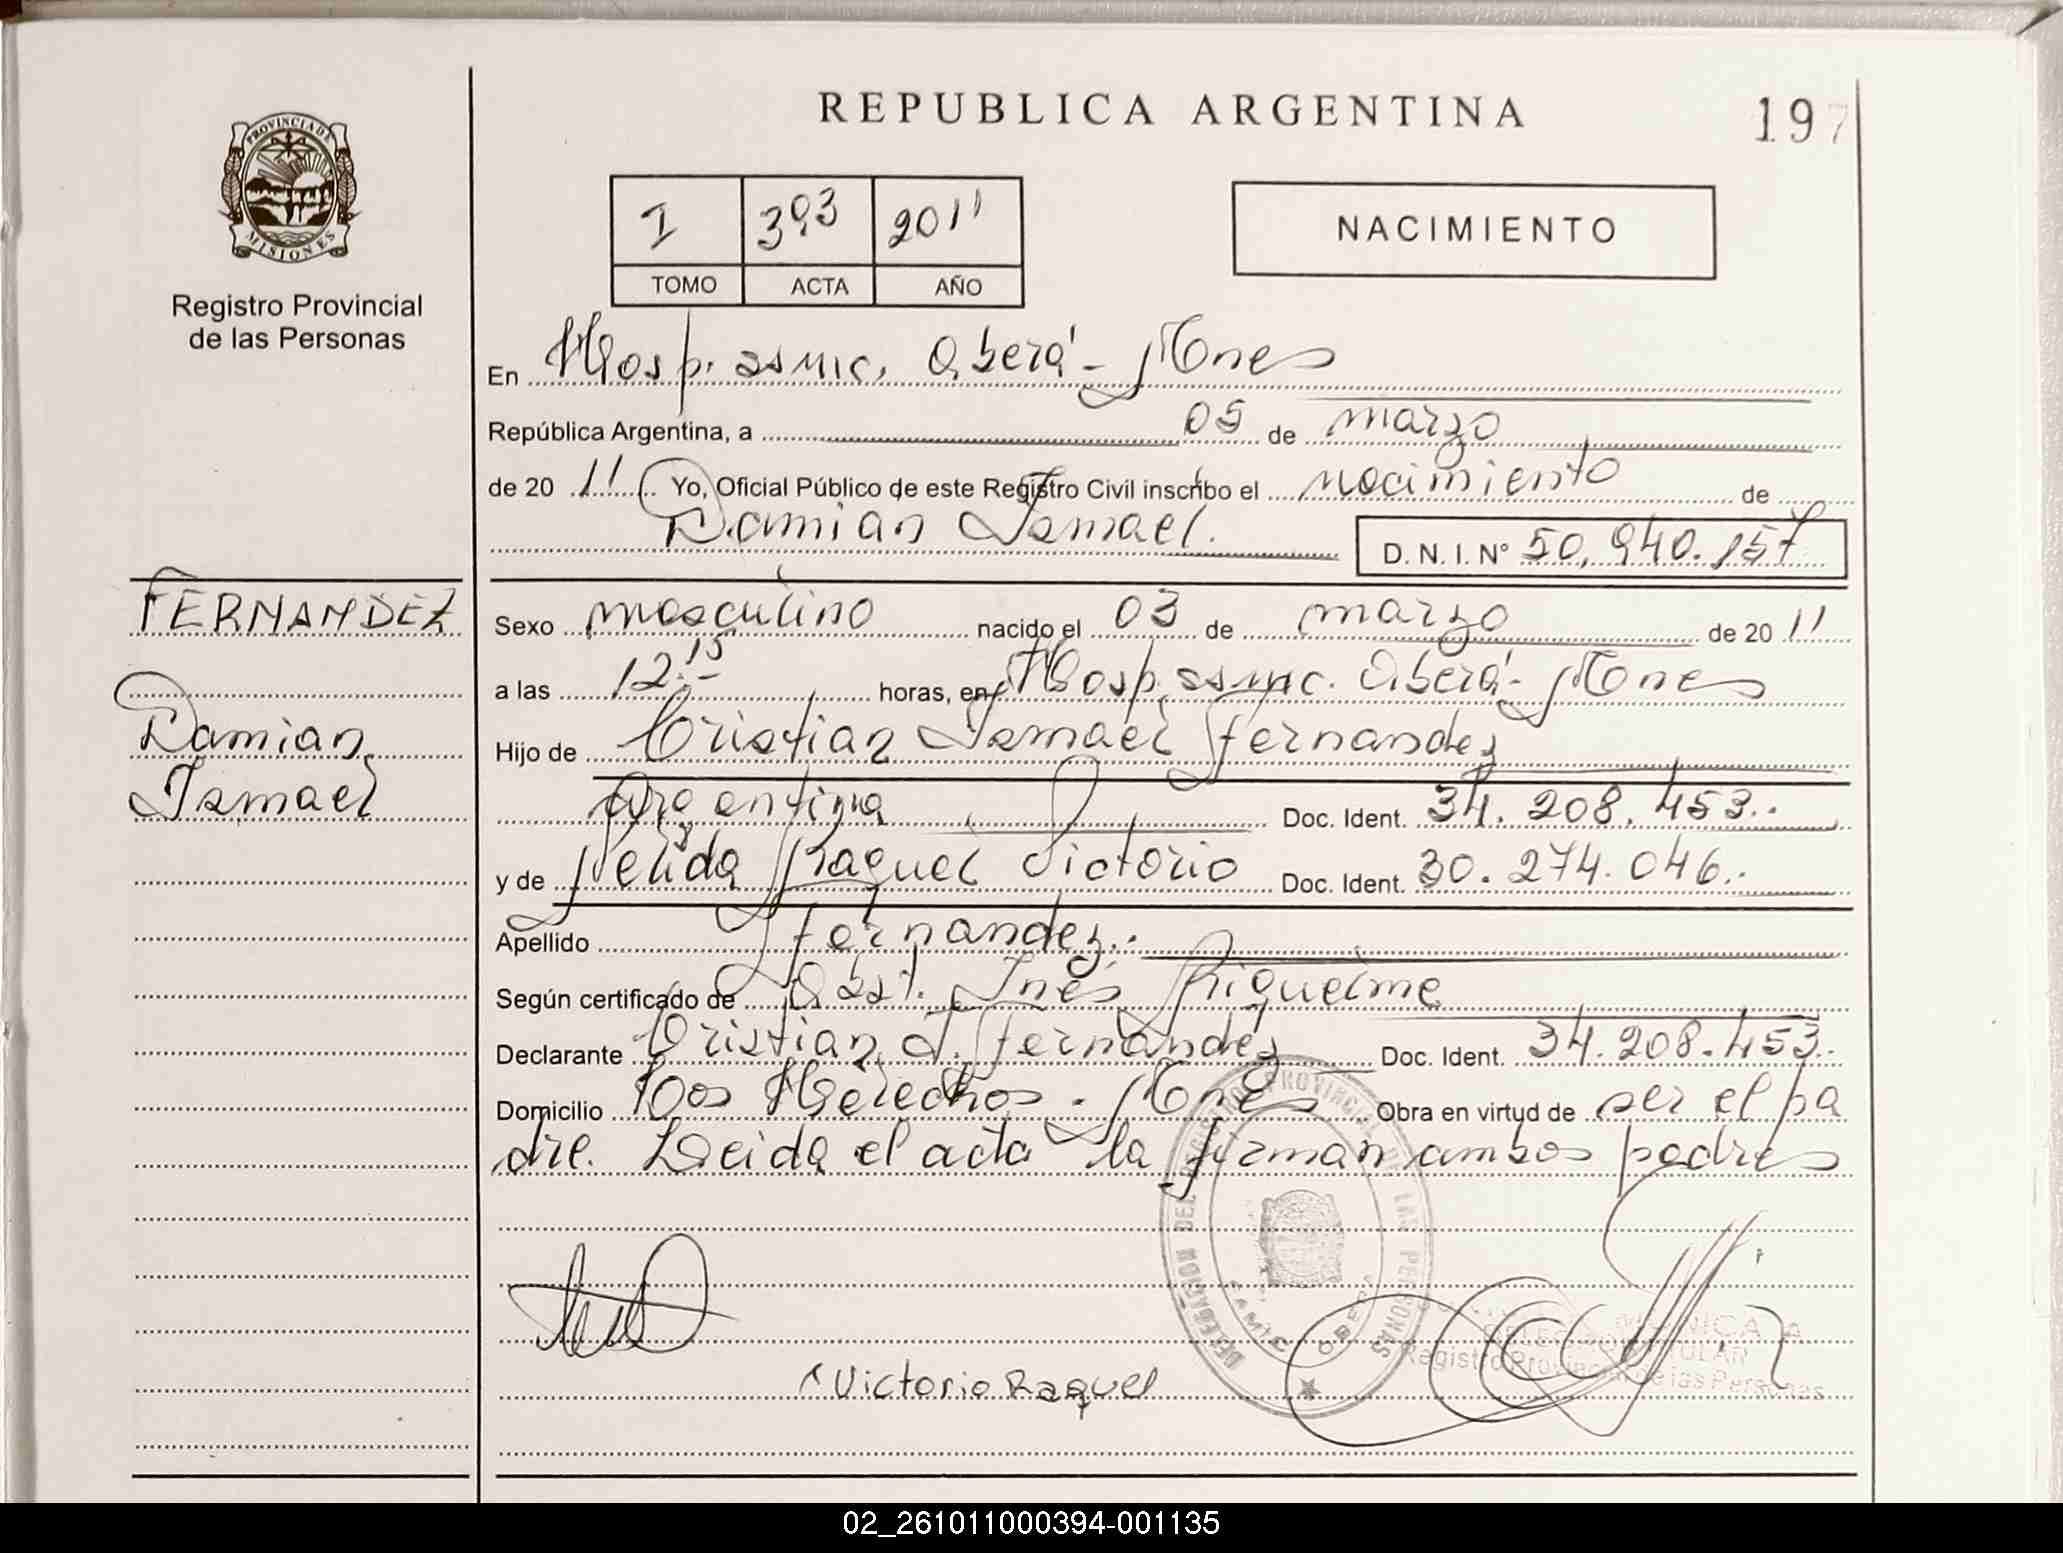 REPUBLICA ARGENTINA
197
PROVINCIA DE
MISIONES
Registro Provincial
de las Personas
I 393 2011
TOMO ACTA AÑO
NACIMIENTO
En Hosp. ssmic. Oberá - Mnes
República Argentina, a 05 de marzo
de 20 11 Yo, Oficial Público de este Registro Civil inscribo el nacimiento de
Damian Ismael.
D. N. I. Nº 50.940.157
FERNANDEZ
Damian
Ismael
Sexo masculino nacido el 03 de marzo de 20 11
a las 12:15 horas, en Hosp. ssmic. Oberá - Mnes
Hijo de Cristian Ismael Fernandez
Argentina Doc. Ident. 34.208.453.-
y de Nelida Raquel Victorio Doc. Ident. 30.274.046.-
Apellido Fernandez.-
Según certificado de Obst. Inés Riquelme
Declarante Cristian I. Fernandez Doc. Ident. 34.208.453.-
Domicilio Dos Hérechos - Mnes Obra en virtud de ser el pa
dre. Leida el acta la firman ambos padres
DELEGACION DEL REGISTRO PROVINCIAL DE LAS PERSONAS
OBERA
Victorio Raquel
Registro Provincial de las Personas
02_261011000394-001135